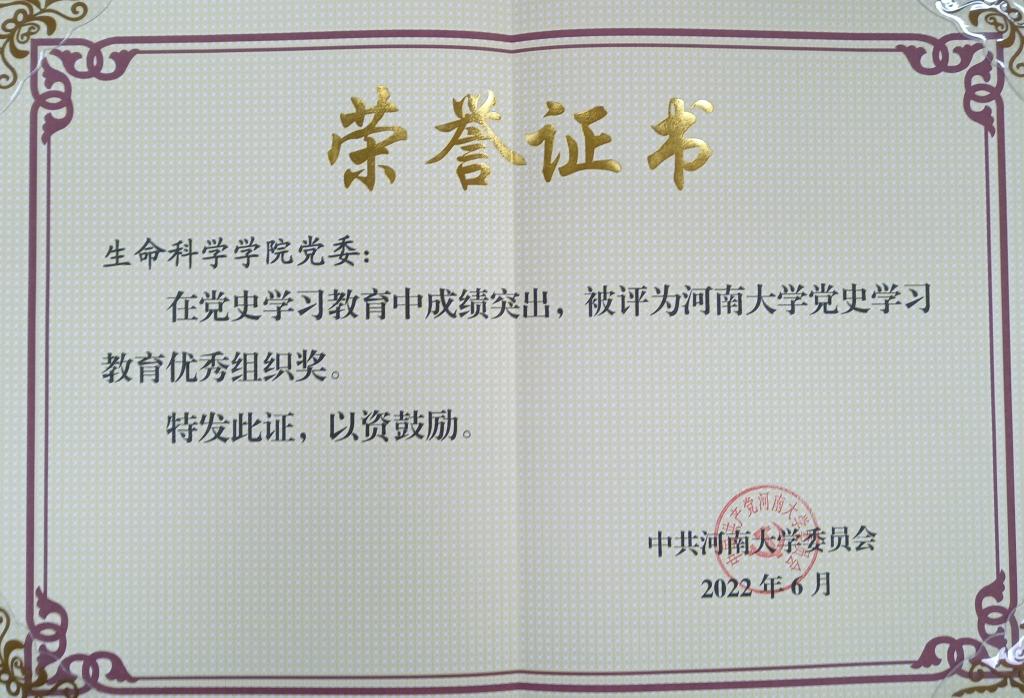 荣誉证书
生命科学学院党委：
在党史学习教育中成绩突出，被评为河南大学党史学习
教育优秀组织奖。
特发此证，以资鼓励。
中国共产党河南大学委员会
中共河南大学委员会
2022年6月